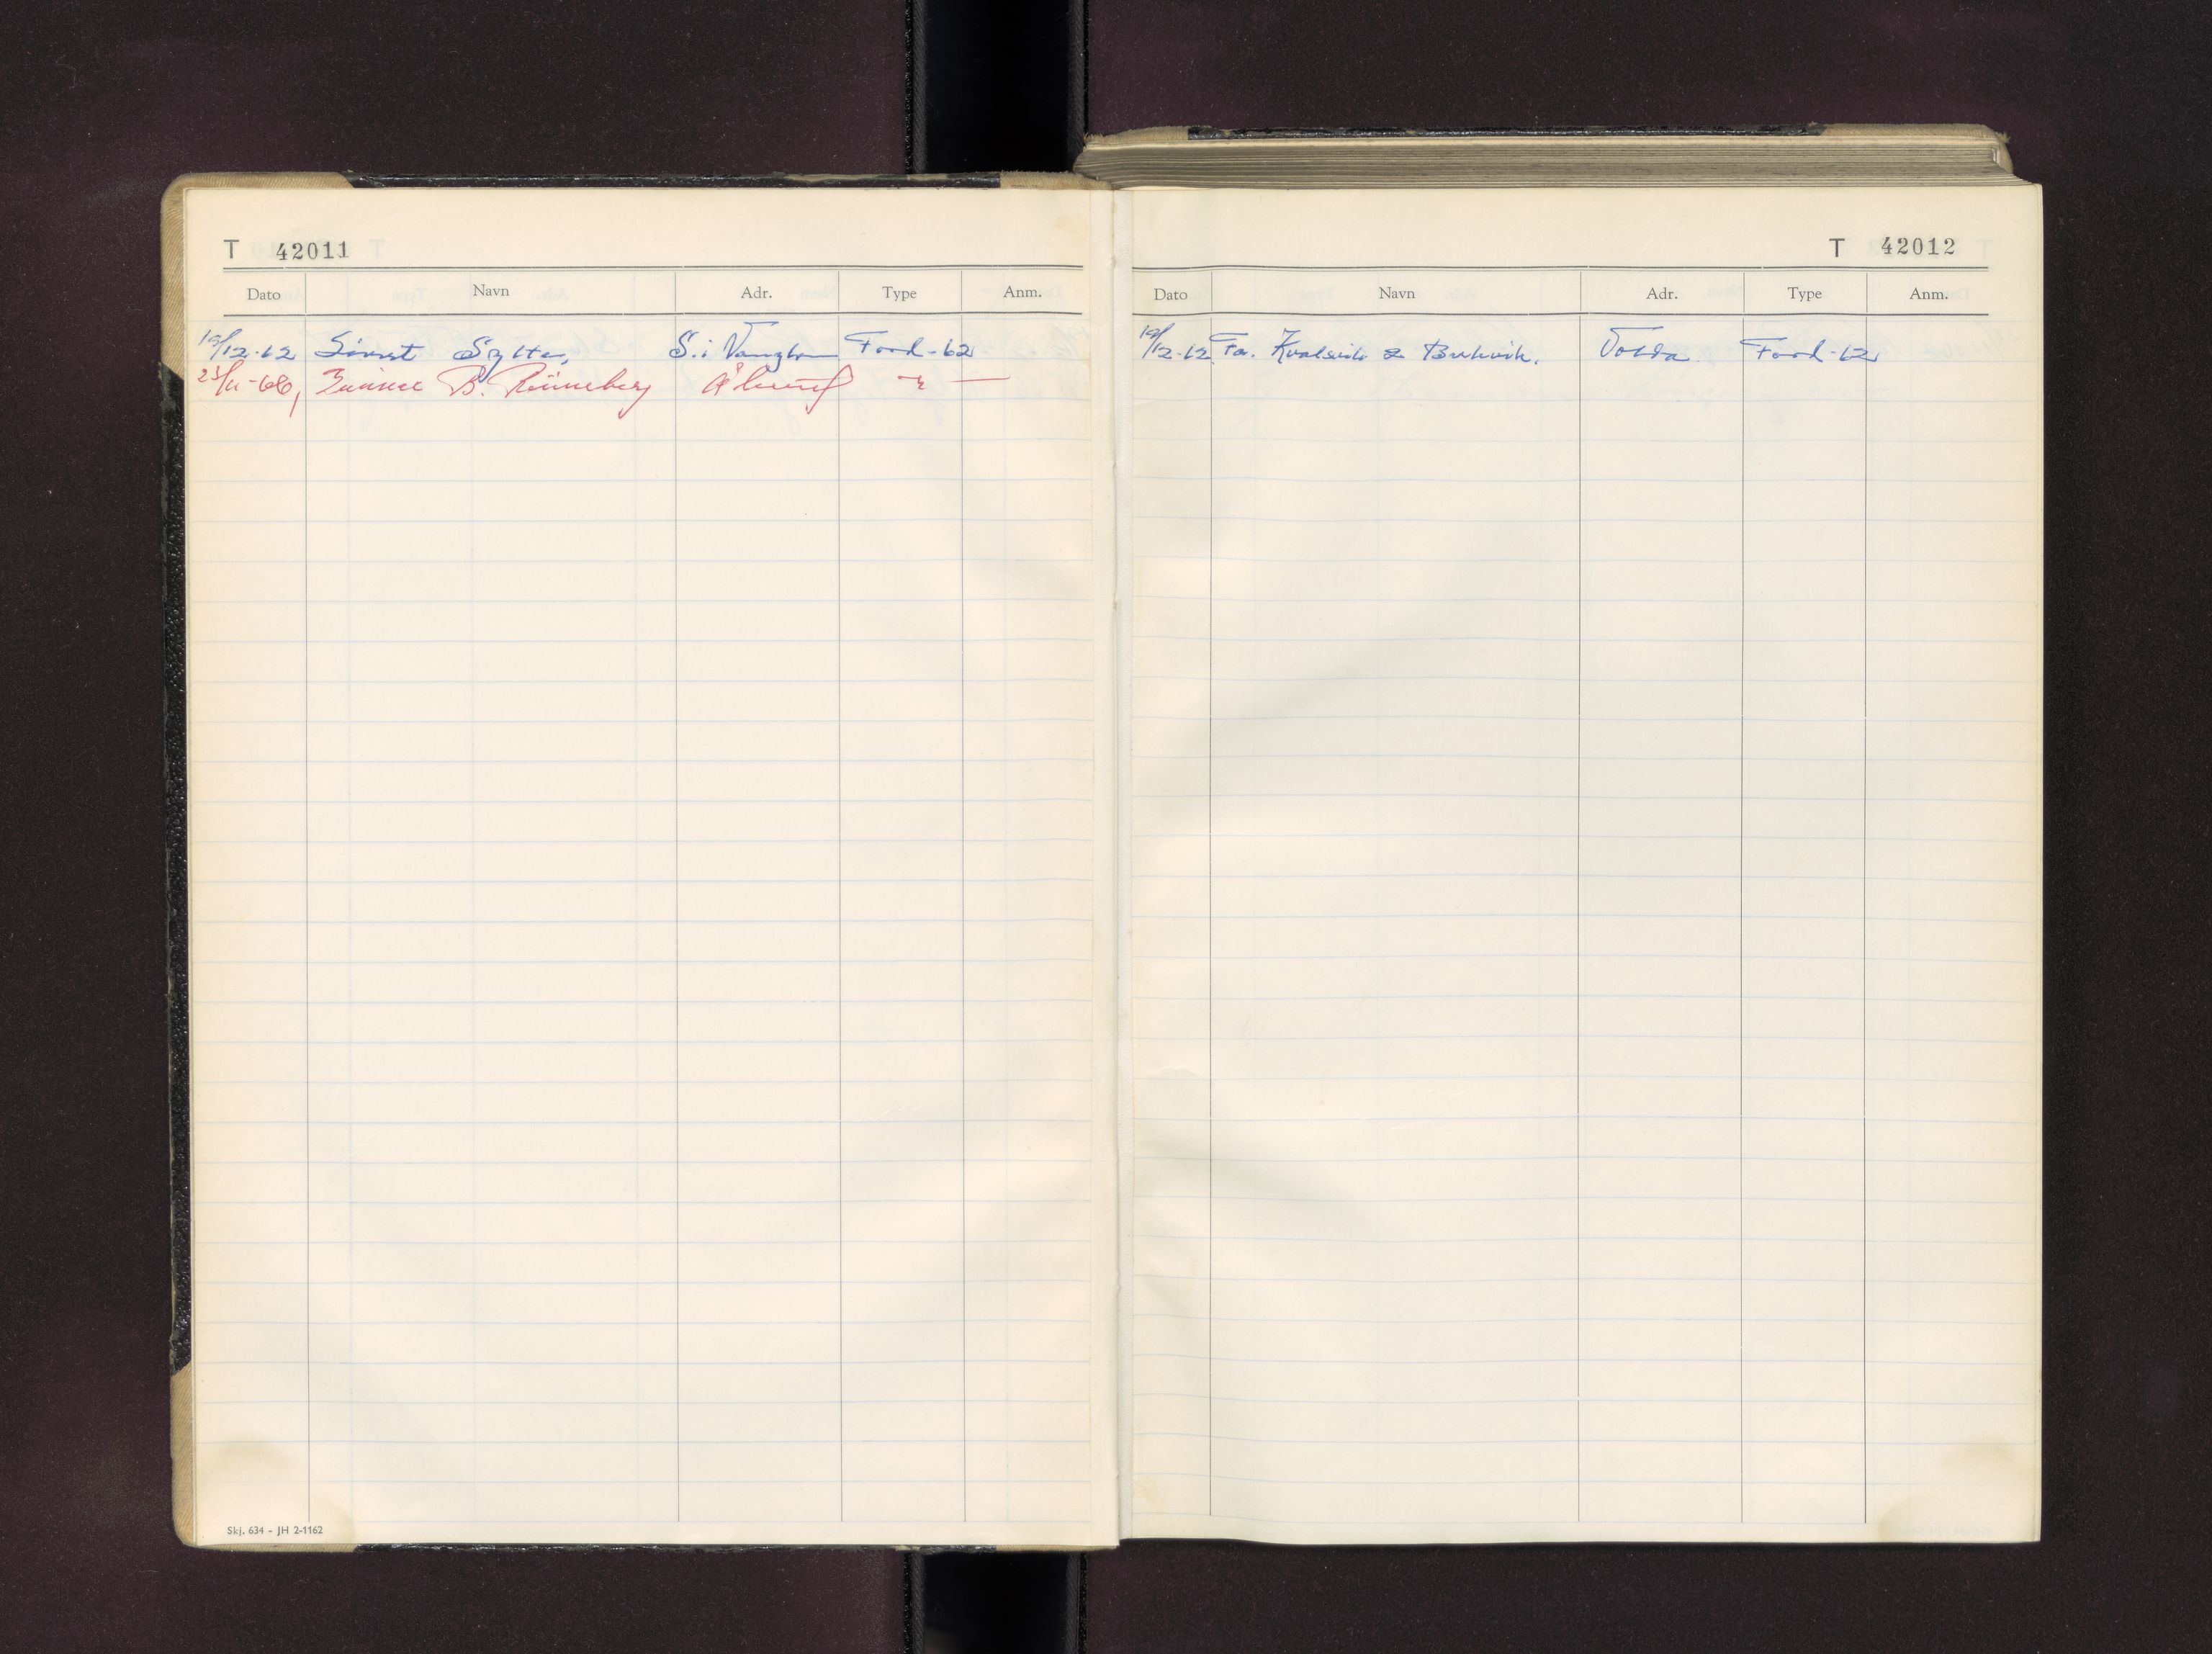 T 42011
Dato Navn Adr. Type Anm.
19/12-62 Sivert Sylte, S. i Vanylven Ford-62
23/11-66, B. Rönneberg Ålesund
Skj. 634 - JH 2-1162
T 42012
Dato Navn Adr. Type Anm.
19/12-62 Fa. Kvalsvik & Volda Ford-62